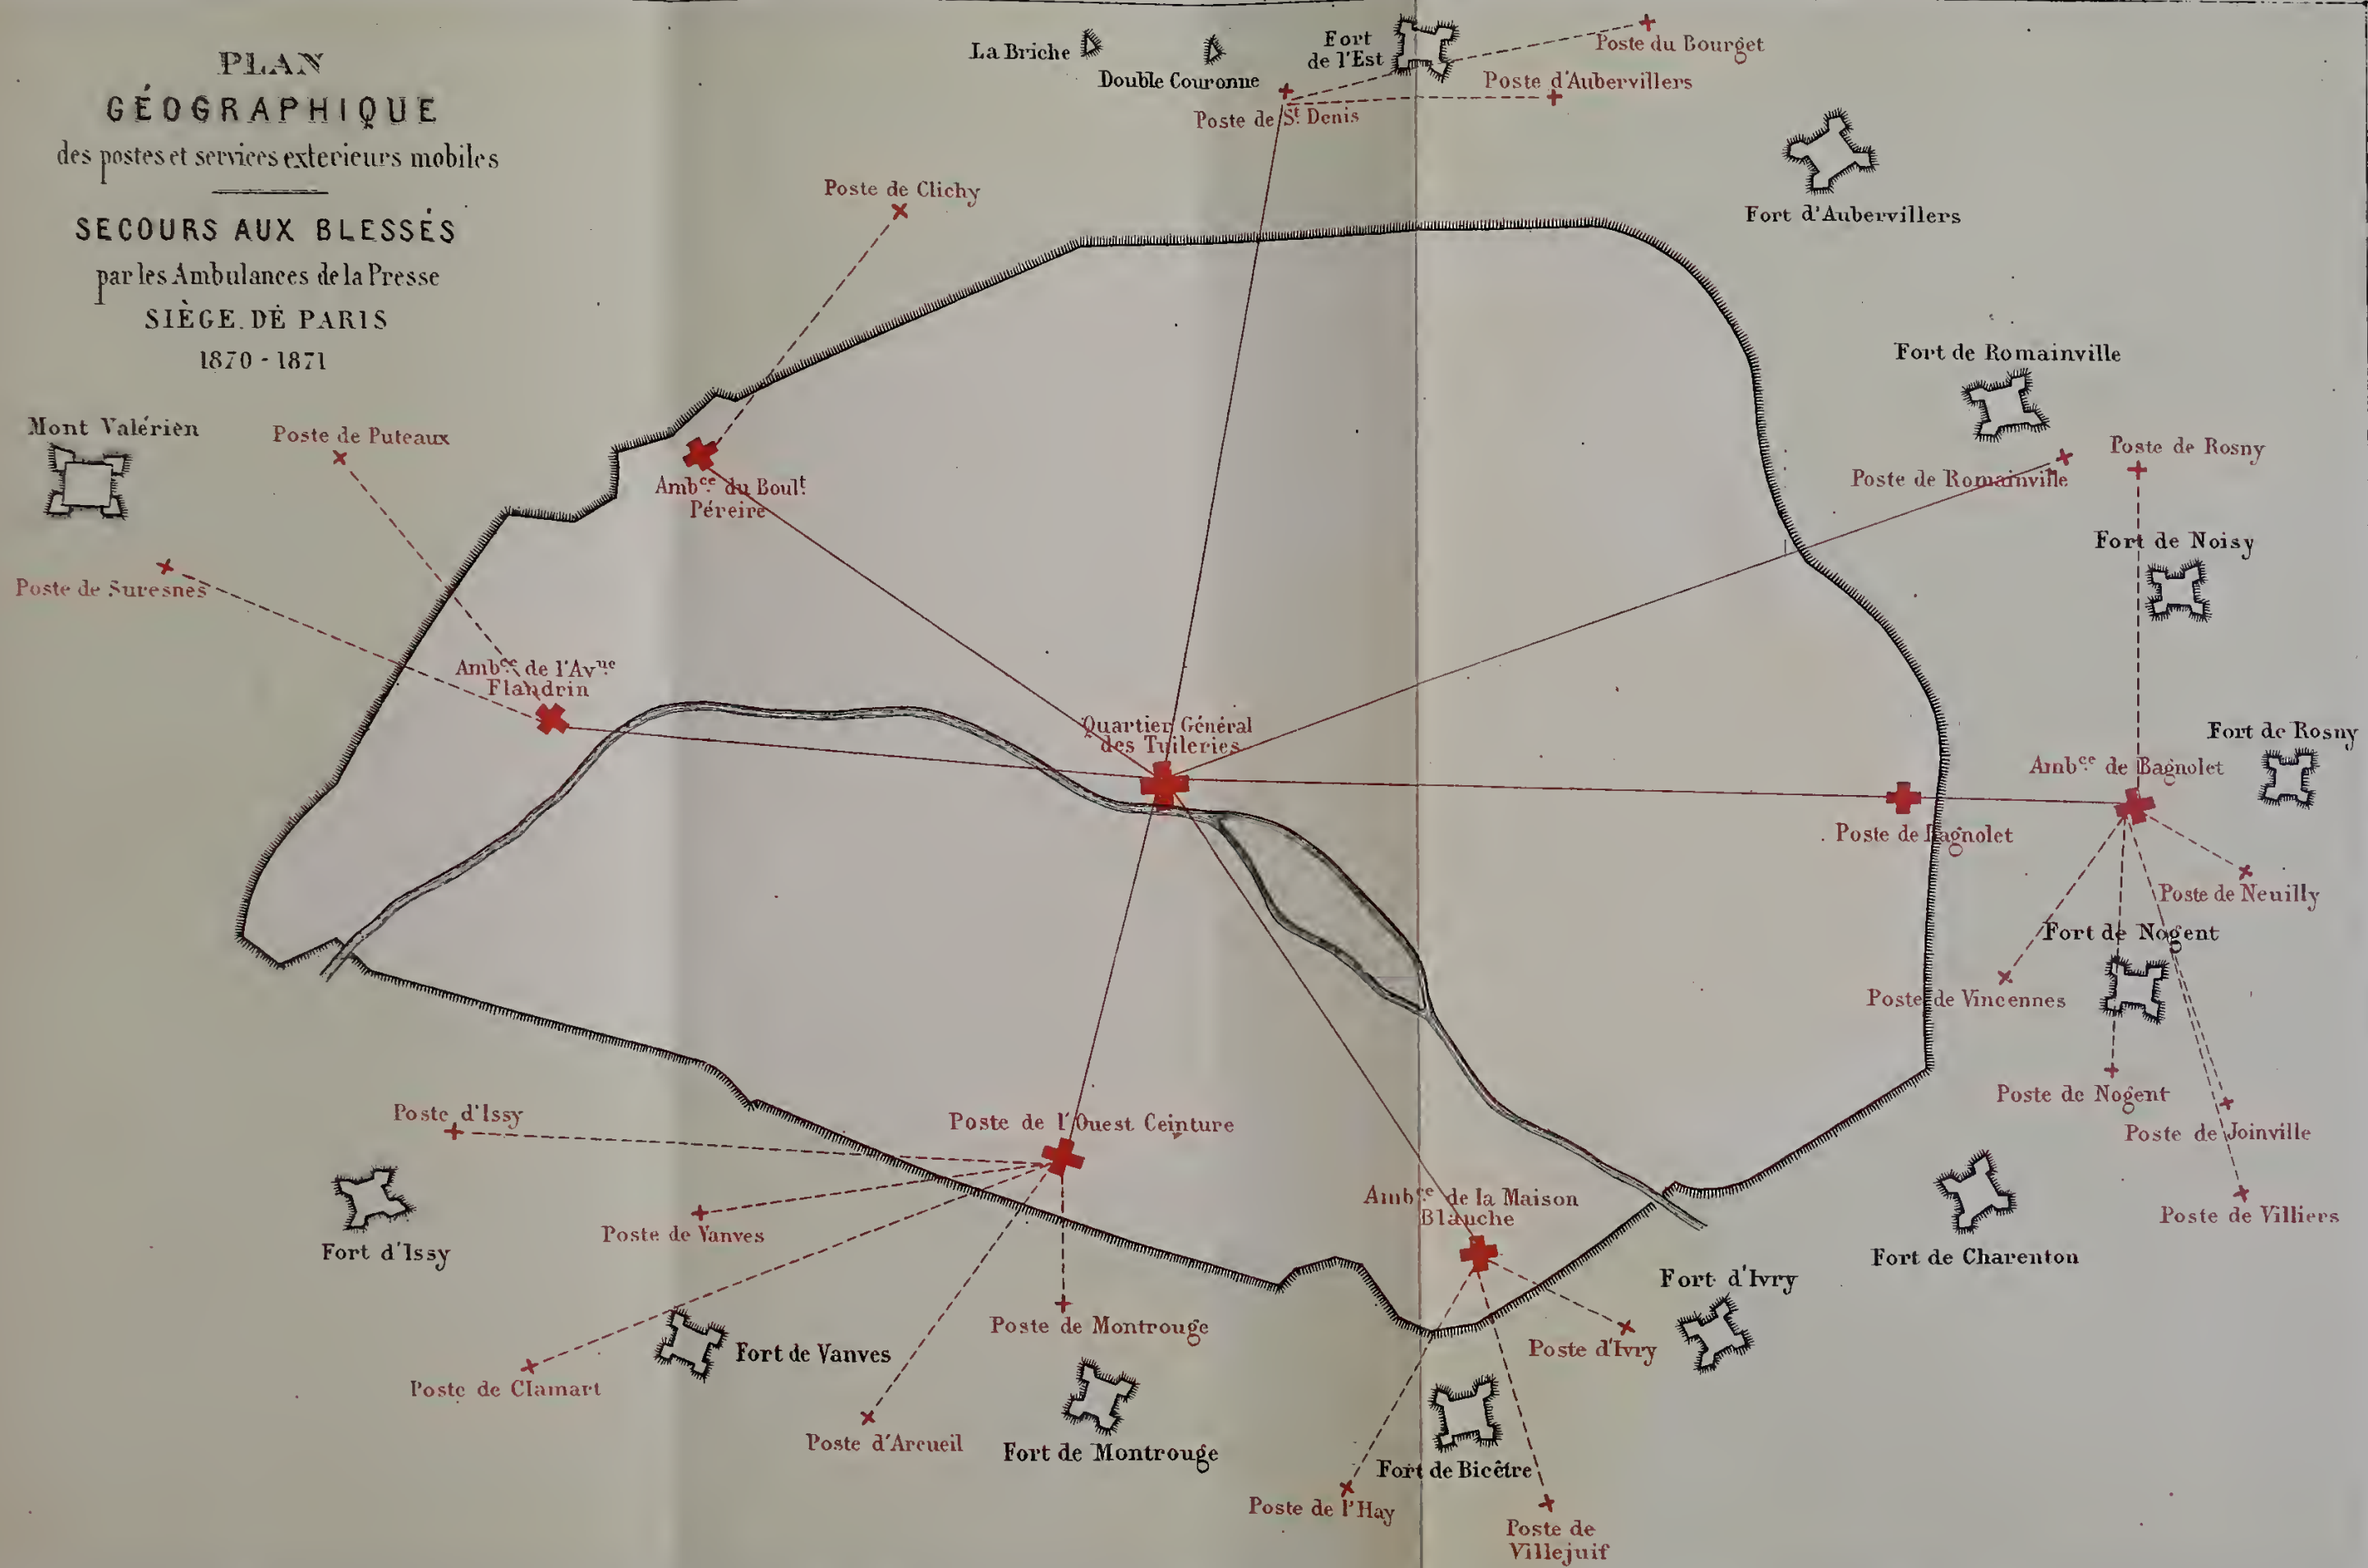 PLAN
GÉOGRAPHIQUE
des postes et services exterieurs mobiles
SECOURS AUX BLESSÉS
par les Ambulances de la Presse
SIÈGE. DÉ PARIS
1870 - 1871
La Briche
Double Couronne
Fort
de l'Est
Poste du Bourget
Poste d'Aubervillers
Poste de St. Denis
Poste de Clichy
Fort d'Aubervillers
Fort de Romainville
Mont Valérien
Poste de Puteaux
Poste de Rosny
Poste de Romainville
Ambce. du Boult.
Péreire
Fort de Noisy
Poste de Suresnes
Ambce. de l'Avue.
Flandrin
Quartier Général
des Tuileries
Fort de Rosny
Ambce. de Bagnolet
Poste de Bagnolet
Poste de Neuilly
Fort de Nogent
Poste de Vincennes
Poste de Nogent
Poste d'Issy
Poste de l'Ouest Ceinture
Poste de Joinville
Ambce. de la Maison
Blanche
Poste de Villiers
Poste de Vanves
Fort d'Issy
Fort de Charenton
Fort d'Ivry
Poste de Montrouge
Fort de Vanves
Poste d'Ivry
Poste de Clamart
Poste d'Arcueil
Fort de Montrouge
Fort de Bicêtre
Poste de l'Hay
Poste de
Villejuif